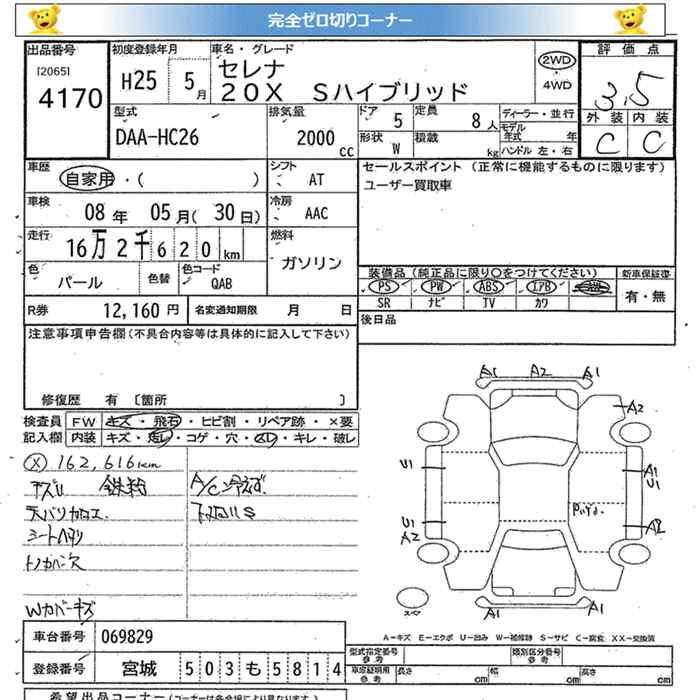 完全ゼロ切りコーナー
出品番号 初度登録年月 車名・グレード 評価点
[2065] 4170
H25 5月
セレナ
20X Sハイブリッド
2WD・4WD
3.5
外装 内装
C C
型式 排気量 ドア 定員 ディーラー・並行
DAA-HC26 2000cc 5 8人
モデル年式 年
形状 W 積載 kg ハンドル 左・右
車歴 自家用・( ) シフト AT
セールスポイント(正常に機能するものに限ります)
ユーザー買取車
車検 08年 05月(30日) 冷房 AAC
走行 16万2千620km 燃料 ガソリン
色 パール 色替 色コード QAB
装備品(純正品に限り○をつけてください) 新車保証書
PS PW ABS エアB AW 有・無
SR ナビ TV カワ
R券 12,160円 名変通知期限 月 日
後日品
注意事項申告欄(不具合内容等は具体的に記入して下さい)
修復歴 有 [箇所 ]
検査員 FW キズ・飛石・ヒビ割・リペア跡・×要
記入欄 内装 キズ・汚レ・コゲ・穴・スレ・キレ・破レ
Ⓧ 162,616km
A/C冷えず
天バリカロエ.
シートヘタリ
トノカバー欠
Wカバーキズ
A1 A2 A1
A2
U1 A1
U1
U1 A2
A2
A1 A1
A-キズ E-エクボ U-凹み W-補修跡 S-サビ C-腐食 XX-交換済
車台番号 069829
登録番号 宮城 503も5814
型式指定番号 参考 類別区分番号 参考
車庫証明用 参考 長さ cm 幅 cm 高さ cm
希望出品コーナー(コーナーは各会場により異なります)